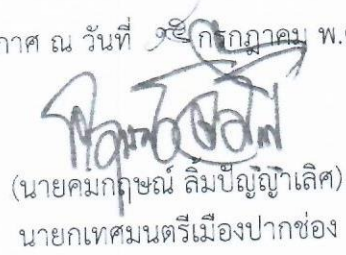 กาศ ณ วันที่ ๑๕ กรกฎาคม พ.
(นายคมกฤษณ์ ลิ้มปัญญาเลิศ)
นายกเทศมนตรีเมืองปากช่อง